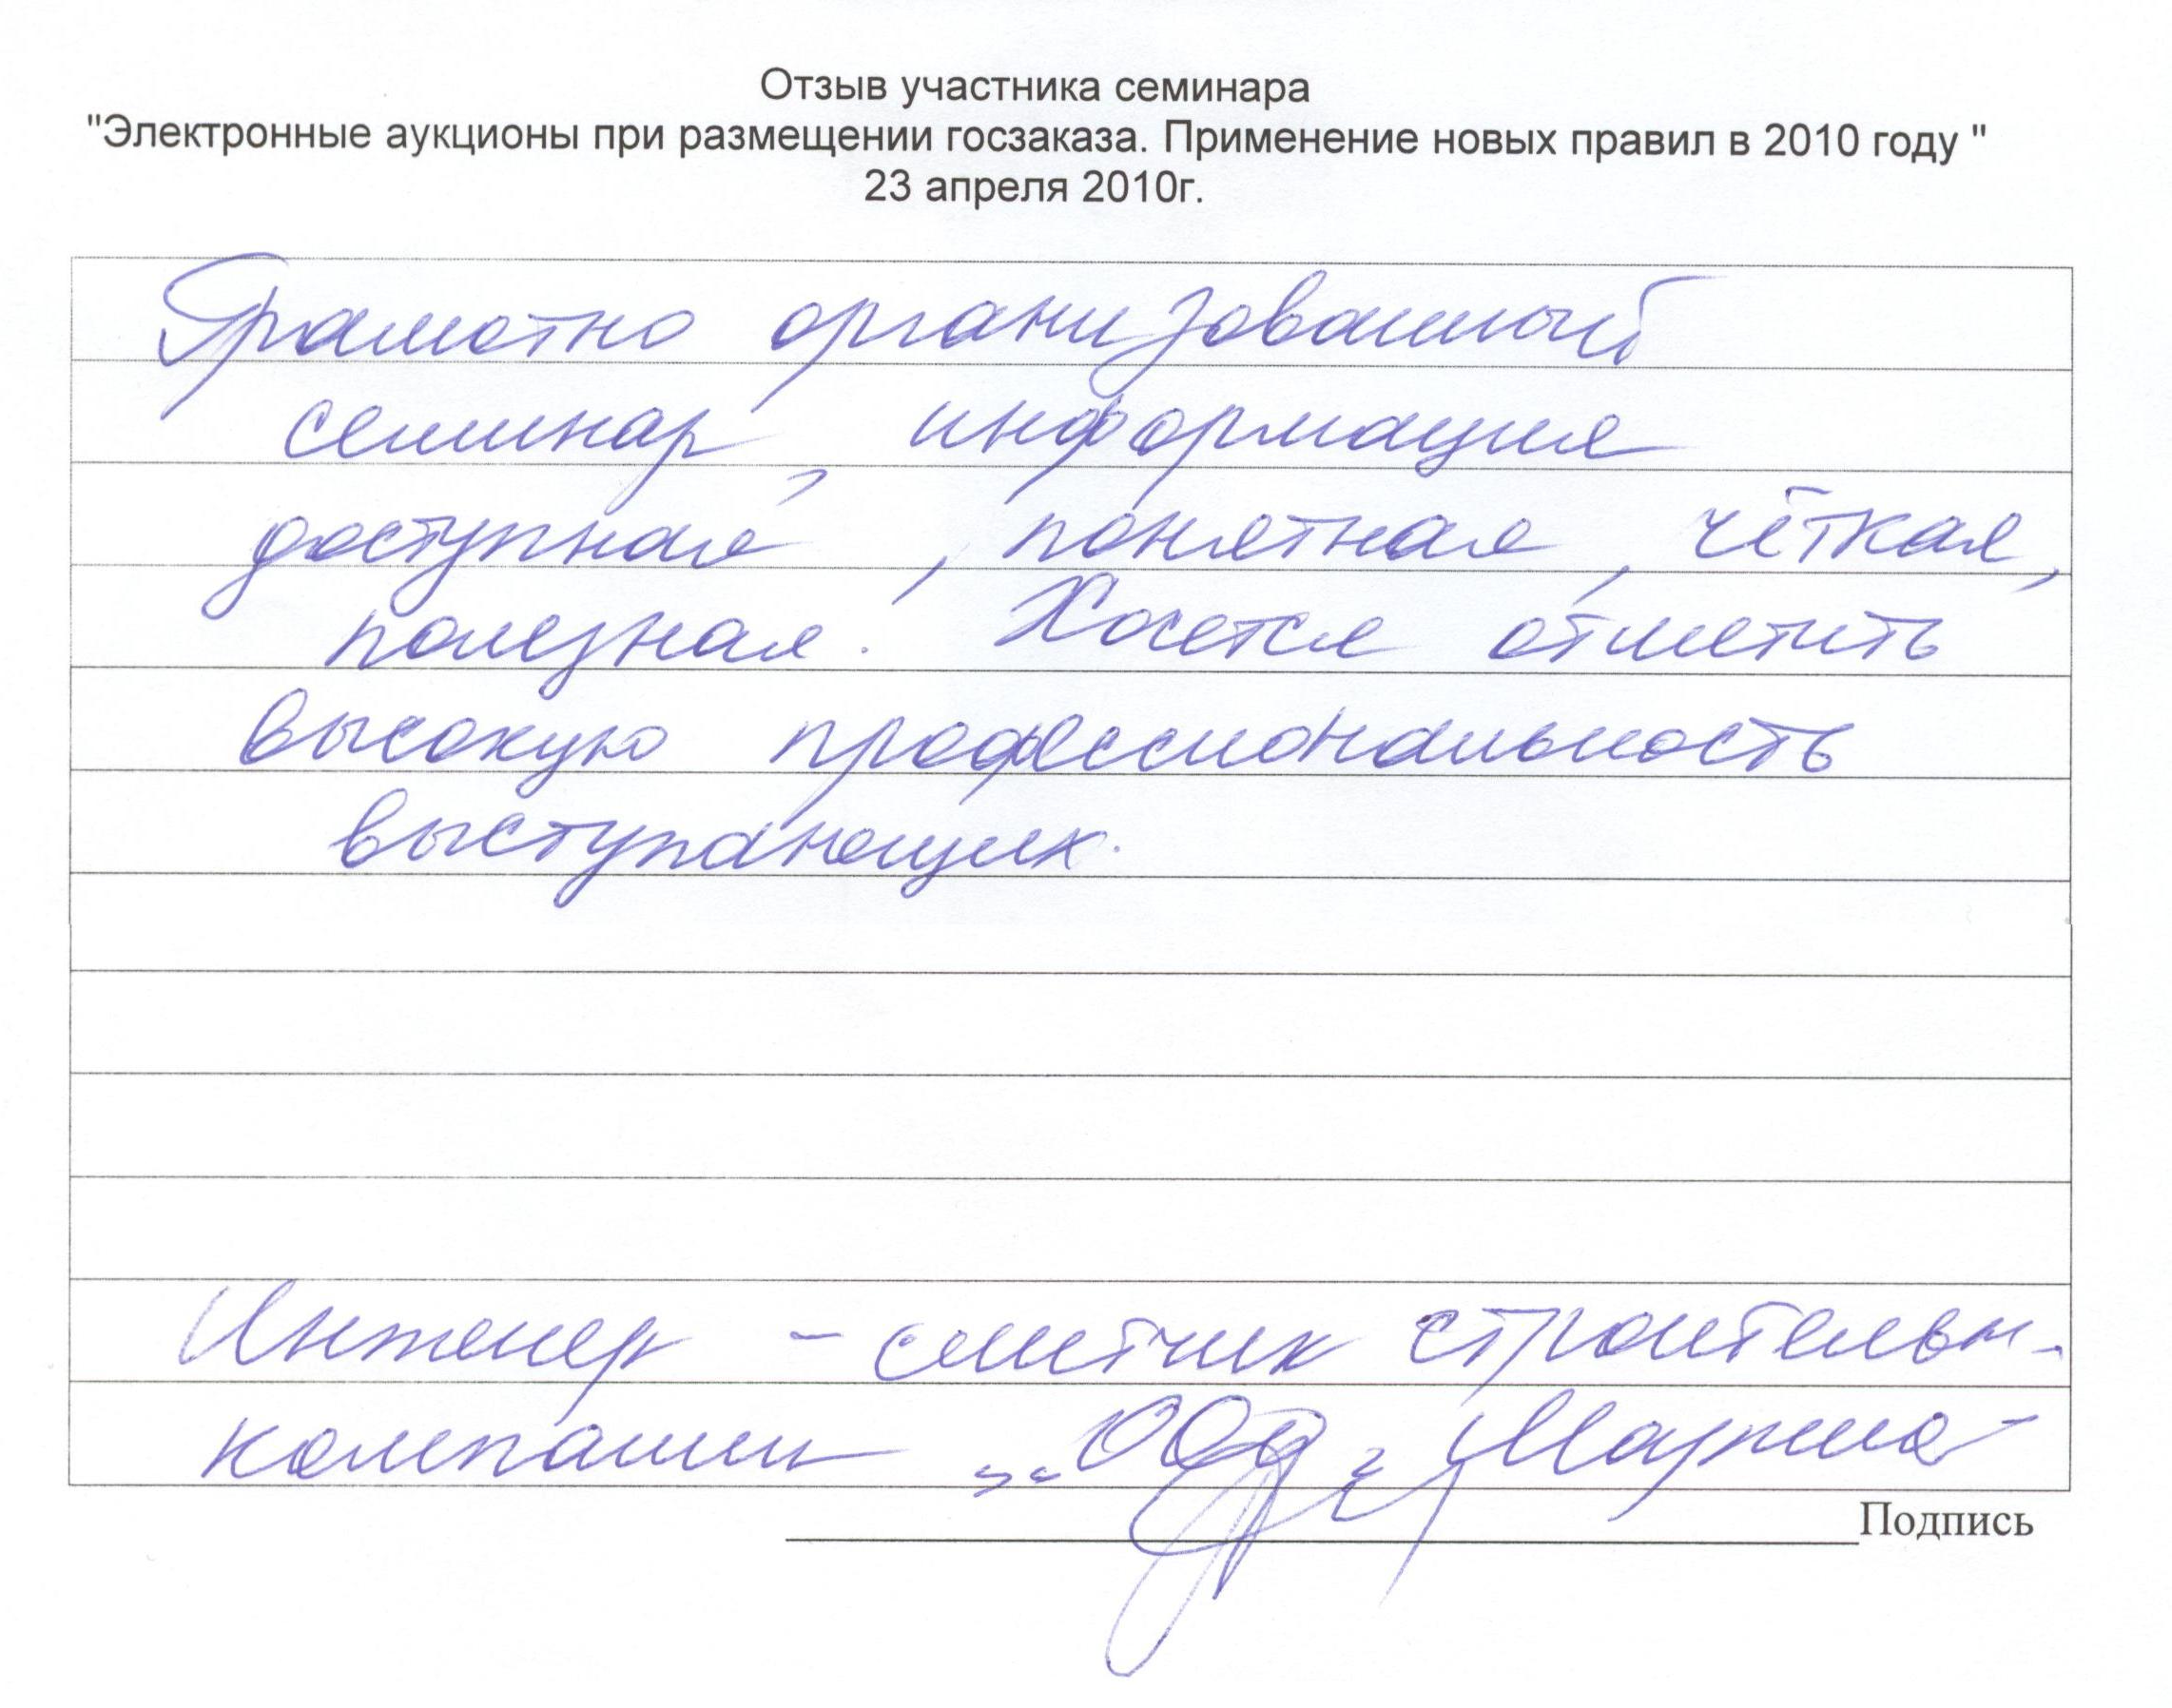 Отзыв участника семинара
"Электронные аукционы при размещении госзаказа. Применение новых правил в 2010 году "
23 апреля 2010г.
Грамотно организованный
семинар, информация
доступная, понятная, чёткая,
полезная. Хочется отметить
высокую профессиональность
выступающих.
Инженер - сметчик строительн.
компании
Подпись